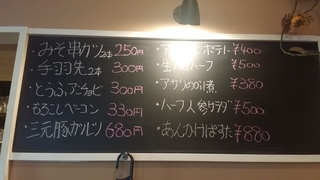 ・みそ串カツ2本 250円
・手羽先2本 300円
・とうふアンチョビ 300円
・もろこしベーコン 330円
・三元豚カルビ 680円
ポテト ¥400
・生 ハーフ ¥500
・アサリの 煮 ¥380
・ハーフ人参サラダ ¥500
・あんかけぱすた ¥880